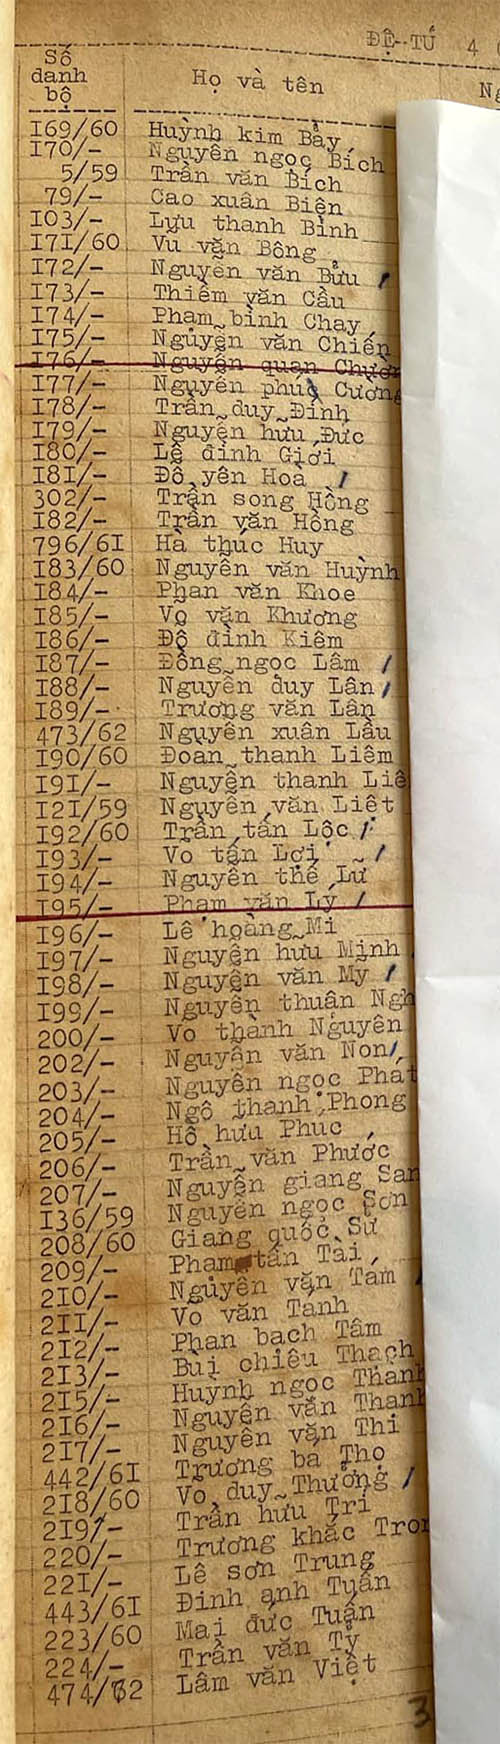 ĐỆ-TỨ 4
Số danh bộ
Họ và tên
I69/60 Huỳnh kim Bảy
I70/- Nguyễn ngọc Bích
5/59 Trần văn Bích
79/- Cao xuân Biên
I03/- Lưu thanh Bình
I7I/60 Vũ văn Bông
I72/- Nguyễn văn Bửu
I73/- Thiềm văn Cầu
I74/- Phạm bình Chay
I75/- Nguyễn văn Chiến
I76/- Nguyễn quan
I77/- Nguyễn phúc Cương
I78/- Trần duy Đính
I79/- Nguyễn hữu Đức
I80/- Lê đình Giới
I8I/- Đỗ yên Hoà
302/- Trần song Hồng
I82/- Trần văn Hồng
796/6I Hà thúc Huy
I83/60 Nguyễn văn Huỳnh
I84/- Phan văn Khoe
I85/- Võ văn Khương
I86/- Đỗ đình Kiêm
I87/- Đồng ngọc Lâm
I88/- Nguyễn duy Lân
I89/- Trương văn Lân
473/62 Nguyễn xuân Lầu
I90/60 Đoàn thanh Liêm
I9I/- Nguyễn thanh
I2I/59 Nguyễn văn Liệt
I92/60 Trần tấn Lộc
I93/- Võ tấn Lợi
I94/- Nguyễn thế Lữ
I95/- Phạm văn Lý
I96/- Lê hoàng Mi
I97/- Nguyễn hữu Minh
I98/- Nguyễn văn Mỹ
I99/- Nguyễn thuận
200/- Võ thành Nguyên
202/- Nguyễn văn Non
203/- Nguyễn ngọc Phát
204/- Ngô thanh Phong
205/- Hồ hữu Phúc
206/- Trần văn Phước
207/- Nguyễn giang
I36/59 Nguyễn ngọc Sơn
208/60 Giang quốc Sử
209/- Phạm tấn Tài
2I0/- Nguyễn văn Tám
2II/- Võ văn Tánh
2I2/- Phan bạch Tâm
2I3/- Bùi chiêu Thạch
2I5/- Huỳnh ngọc Thanh
2I6/- Nguyễn văn Thanh
2I7/- Nguyễn văn Thi
442/6I Trương bá Thọ
2I8/60 Võ duy Thưởng
2I9/- Trần hữu Trí
220/- Trương khắc
22I/- Lê sơn Trung
443/6I Đinh anh Tuấn
223/60 Mai đức Tuấn
224/- Trần văn Tỷ
474/62 Lâm văn Việt
3